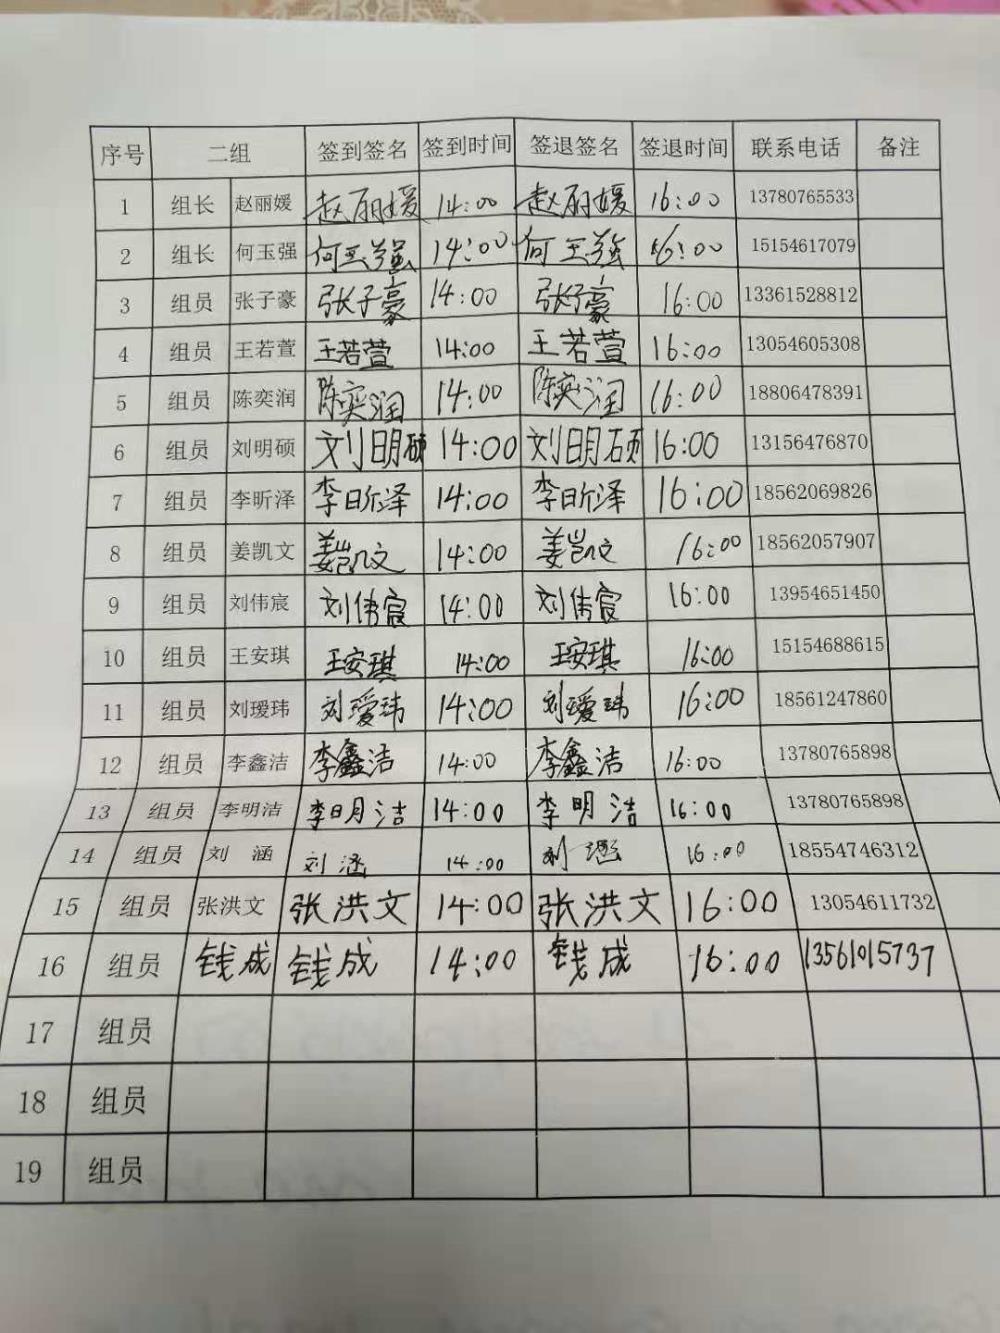 序号 二组 签到签名 签到时间 签退签名 签退时间 联系电话 备注
1 组长 赵丽媛 赵丽媛 14:00 赵丽媛 16:00 13780765533
2 组长 何玉强 何玉强 14:00 何玉强 16:00 15154617079
3 组员 张子豪 张子豪 14:00 张子豪 16:00 13361528812
4 组员 王若萱 王若萱 14:00 王若萱 16:00 13054605308
5 组员 陈奕润 陈奕润 14:00 陈奕润 16:00 18806478391
6 组员 刘明硕 刘明硕 14:00 刘明硕 16:00 13156476870
7 组员 李昕泽 李昕泽 14:00 李昕泽 16:00 18562069826
8 组员 姜凯文 姜凯文 14:00 姜凯文 16:00 18562057907
9 组员 刘伟宸 刘伟宸 14:00 刘伟宸 16:00 13954651450
10 组员 王安琪 王安琪 14:00 王安琪 16:00 15154688615
11 组员 刘瑷玮 刘瑷玮 14:00 刘瑷玮 16:00 18561247860
12 组员 李鑫洁 李鑫洁 14:00 李鑫洁 16:00 13780765898
13 组员 李明洁 李明洁 14:00 李明洁 16:00 13780765898
14 组员 刘 涵 刘 涵 14:00 刘 涵 16:00 18554746312
15 组员 张洪文 张洪文 14:00 张洪文 16:00 13054611732
16 组员 钱成 钱成 14:00 钱成 16:00 13561015737
17 组员
18 组员
19 组员